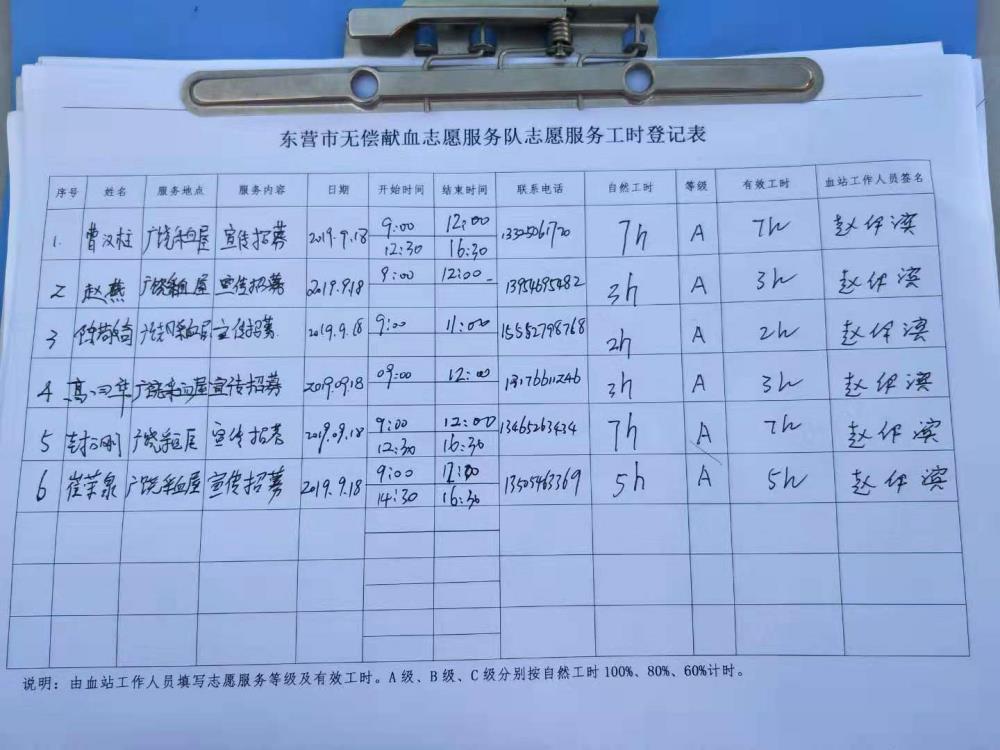 东营市无偿献血志愿服务队志愿服务工时登记表
序号 姓名 服务地点 服务内容 日期 开始时间 结束时间 联系电话 自然工时 等级 有效工时 血站工作人员签名
1. 曹汉柱 广饶采血屋 宣传招募 2019.9.18 9:00 12:00 13305061720 7h A 7h 赵伊滨
12:30 16:30
2 赵燕 广饶采血屋 宣传招募 2019.9.18 9:00 12:00 13954695482 3h A 3h 赵伊滨
3 广饶采血屋 宣传招募 2019.9.18 9:00 11:00 15552798768 2h A 2h 赵伊滨
4 广饶采血屋 宣传招募 2019.09.18 09:00 12:00 13176611246 3h A 3h 赵伊滨
5 广饶采血屋 宣传招募 2019.09.18 9:00 12:00 13465263434 7h A 7h 赵伊滨
12:30 16:30
6 崔荣泉 广饶采血屋 宣传招募 2019.9.18 9:00 12:00 13505463369 5h A 5h 赵伊滨
14:30 16:30
说明：由血站工作人员填写志愿服务等级及有效工时。A级、B级、C级分别按自然工时100%、80%、60%计时。